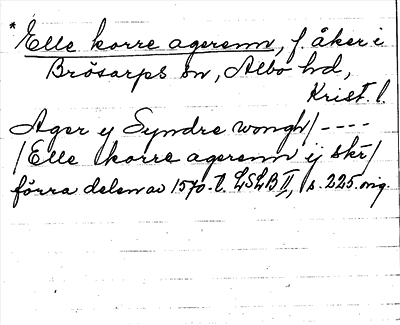 * Elle korre agerenn, f. åker i
Brösarps sn, Albo hd,
Krist. l.
Ager y Syndre wongh/ ----
/Elle korre agerenn ij skr/
förra delen av 1570-t. LSLB II, s. 225. orig.